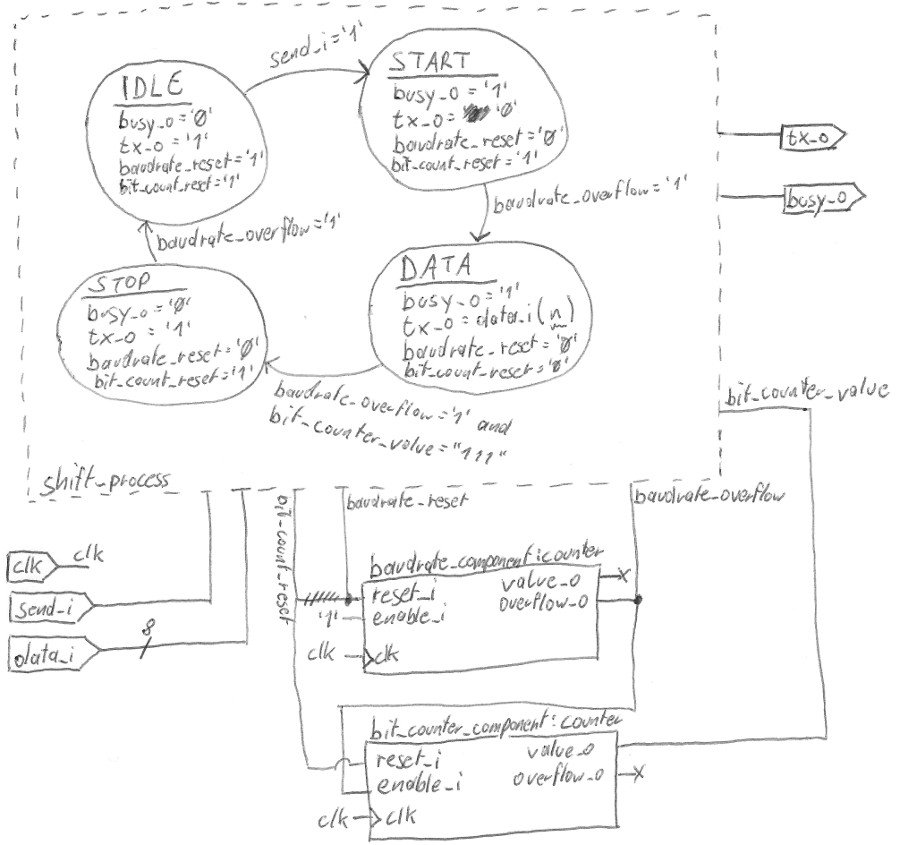 send_i='1'
IDLE
busy_o='0'
tx_o='1'
baudrate_reset='1'
bit_count_reset='1'
START
busy_o='1'
tx_o='0'
baudrate_reset='0'
bit_count_reset='1'
baudrate_overflow='1'
baudrate_overflow='1'
STOP
busy_o='0'
tx_o='1'
baudrate_reset='0'
bit_count_reset='1'
DATA
busy_o='1'
tx_o=data_i(n)
baudrate_reset='0'
bit_count_reset='0'
baudrate_overflow='1' and
bit_counter_value="111"
shift_process
tx_o
busy_o
bit_counter_value
bit_count_reset
baudrate_reset
baudrate_overflow
clk clk
send_i
data_i 8
baudrate_component:counter
reset_i value_o
overflow_o
'1' enable_i
clk clk
bit_counter_component:counter
reset_i value_o
enable_i overflow_o
clk clk